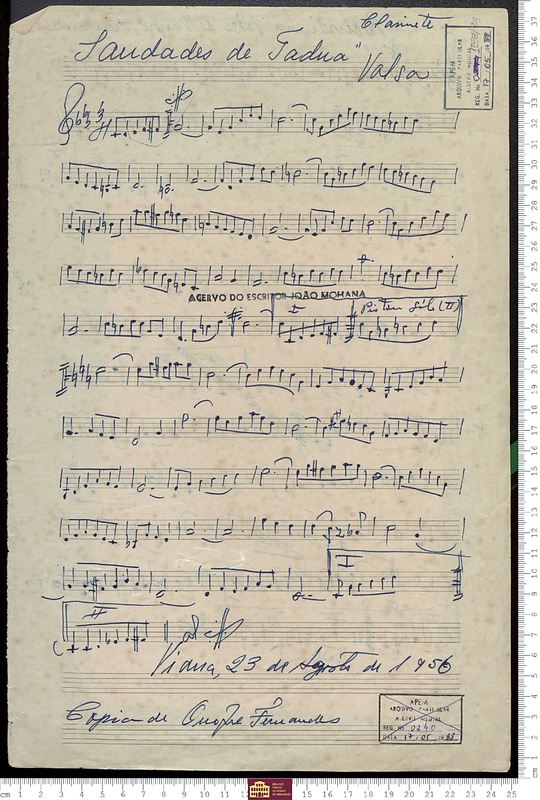 Clarinete
Saudades de Tadua"
Valsa
APEM
ARQUIVO PARTICULAR
REG. No
DATA 17.05.1988
ACERVO DO ESCRITOR JOÃO MOHANA
I
(II)
I
II
Viana, 23 de Agosto de 1956
Copia de Onofre Fernandes
APEM
ARQUIVO PARTICULAR
REG. No 0240
DATA 17.05.1988